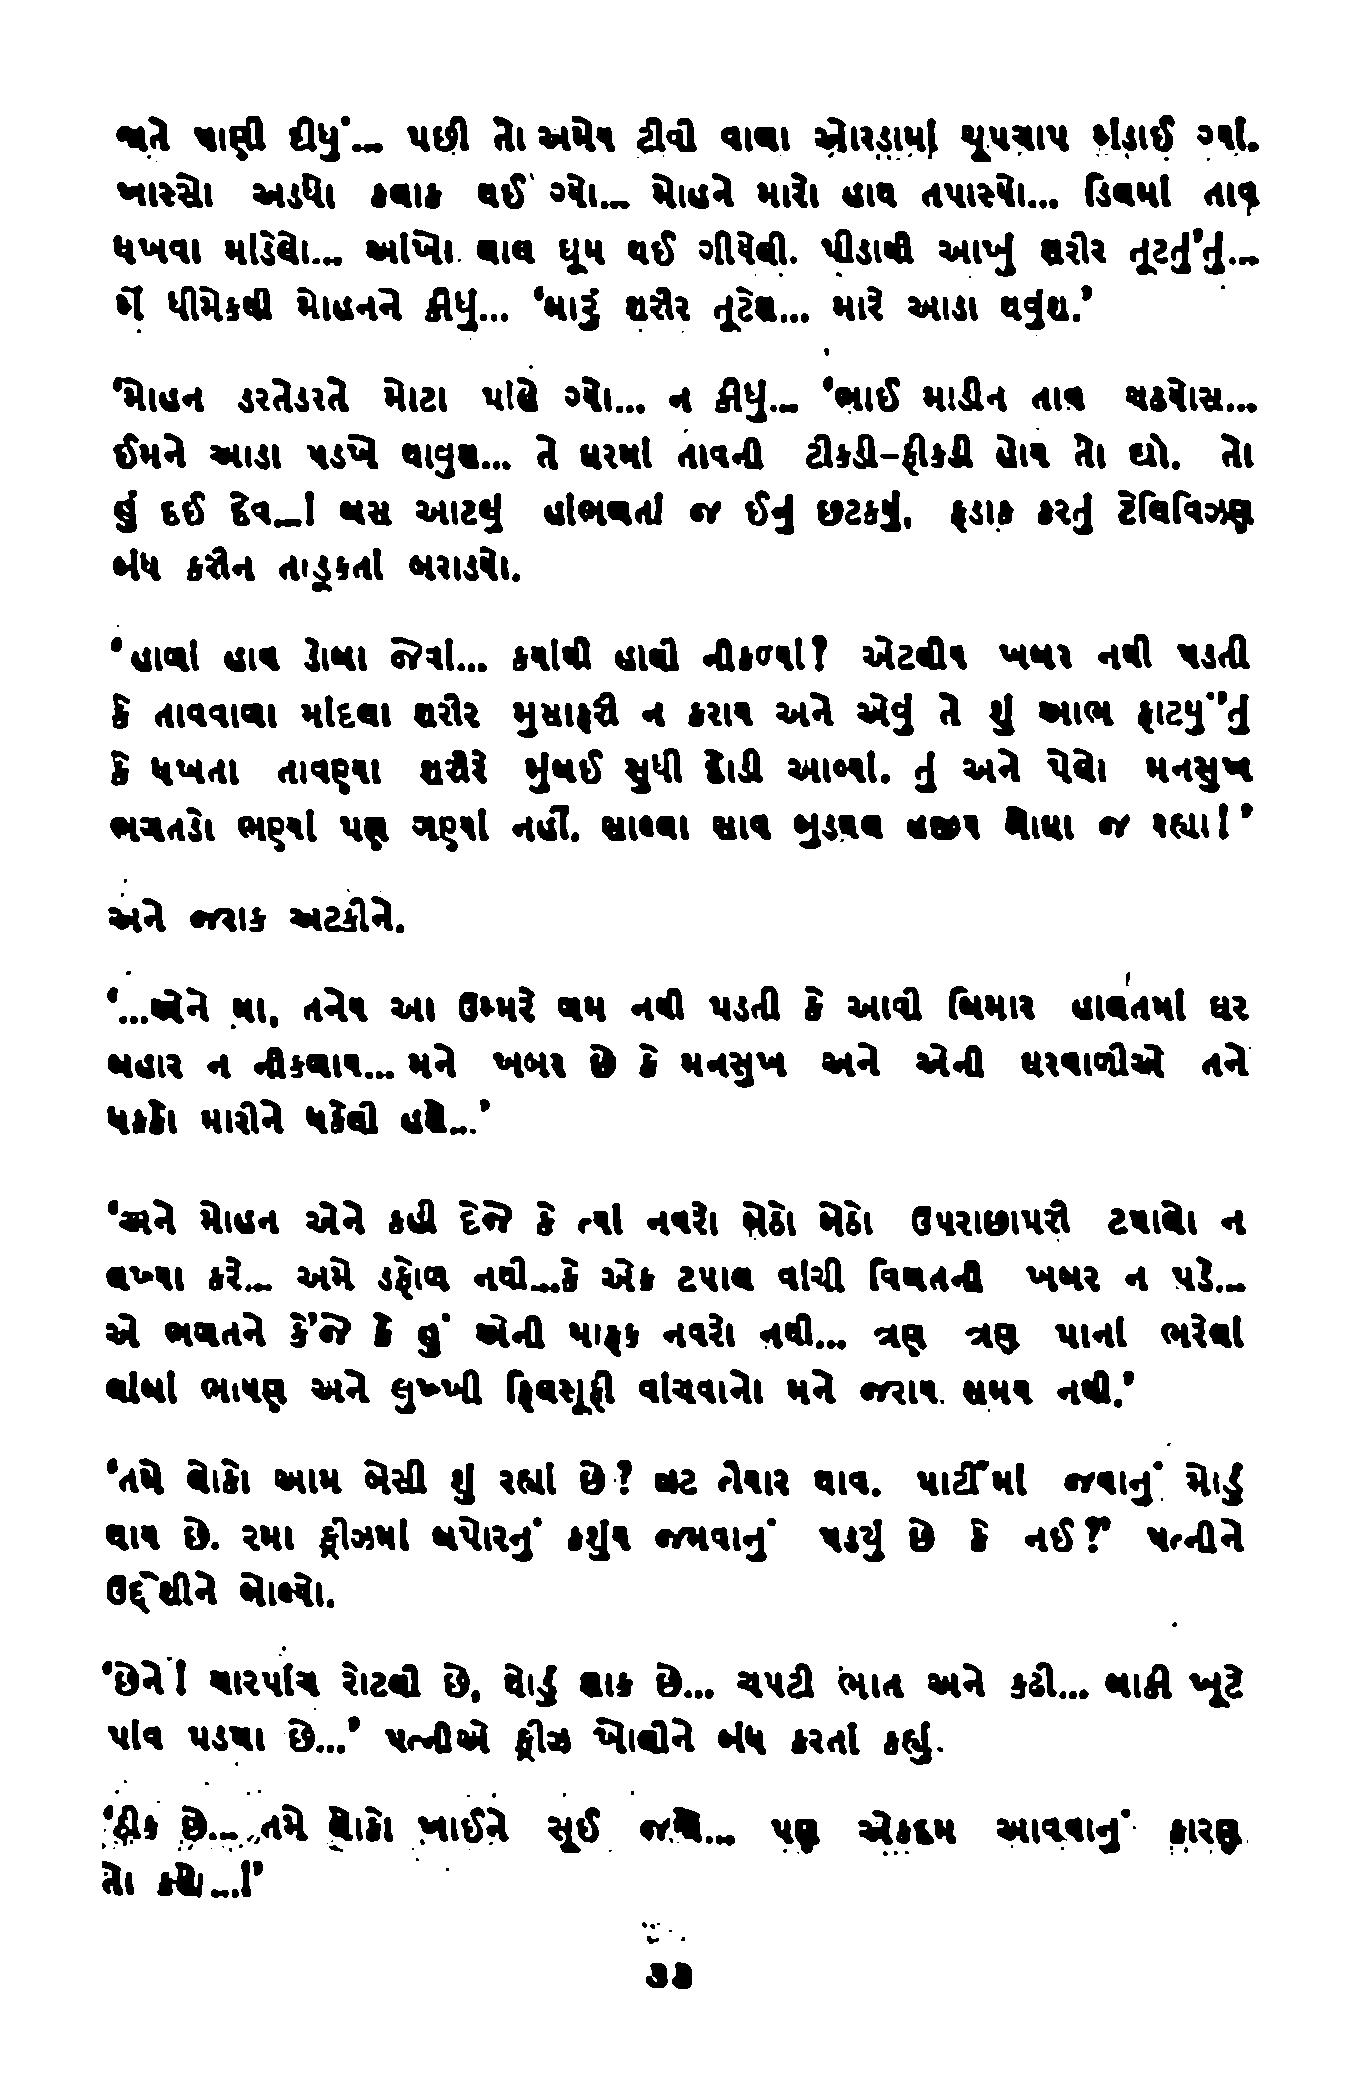 પાણી દીધું... પછી તો અમેય ટીવી વાળા ઓરડામાં ચૂપચાપ ગ્યાં.
ખાસ્સો અડધો કલાક થઈ ગ્યો... મોહને મારો હાથ તપાસ્યો... ડિલમાં તાવ
ધખવા માંડેલો... આંખો લાલ ધૂમ થઈ ગીયેલી. પીડાથી આખું શરીર તૂટતું'તું...
મેં ધીમેકથી મોહનને કીધું... 'મારું શરીર તૂટેશ... મારે આડા થવુંશ.'
'મોહન ડરતેડરતે મોટા પાંહે ગ્યો... ન કીધું... 'ભાઈ માડીન તાવ ચઢયોસ...
ઈમને આડા પડખે થાવુશ... તે ઘરમાં તાવની ટીકડી-ફીકડી હોય તો દ્યો. તો
હું દઈ દેવ...! બસ આટલું હાંભળતાં જ ઈનું છટકયું. ફડાક કરતું ટેલિવિઝન
બંધ કરીન તાડૂકતાં બરાડયો.
'હાલ્યાં હાથ જેવાં... કયાંથી હાલી નીકળ્યાં? એટલીય ખબર નથી પડતી
કે તાવવાળા માંદલા શરીર મુસાફરી ન કરાય અને એવું તે શું આભ ફાટયું'તું
કે ધખતા તાવણ્યા શરીરે મુંબઈ સુધી દોડી આવ્યાં. તું અને પેલો મનસુખ
ભગતડો ભણ્યાં પણ ગણ્યાં નહીં. સાલ્લા સાવ બુડથલ હજીય જ રહ્યા!'
અને જરાક અટકીને.
'...એને બા, તનેય આ ઉમ્મરે ગમ નથી પડતી કે આવી બિમાર હાલતમાં ઘર
બહાર ન નીકળાય... મને ખબર છે કે મનસુખ અને એની ઘરવાળીએ તને
ધકકો મારીને ધકેલી હશે...'
'અને મોહન એને કહી દેજે કે ત્યાં નવરો બેઠો બેઠો ઉપરાછાપરી ટપાલો ન
લખ્યા કરે... અમે ડફોળ નથી...કે એક ટપાલ વાંચી વિગતની ખબર ન પડે...
એ ભગતને કે'જે કે હું એની માફક નવરો નથી... ત્રણ ત્રણ પાનાં ભરેલાં
લાંબાં ભાષણ અને લુખ્ખી ફિલસૂફી વાંચવાનો મને જરાય સમય નથી.'
'તમે લોકો આમ બેસી શું રહ્યાં છે? ઝટ તૈયાર થાવ. પાર્ટીમાં જવાનું મોડું
થાય છે. રમા ફ્રીઝમાં બપોરનું કશુંય જમવાનું પડયું છે કે નઈ?' પત્નીને
ઉદ્દેશીને બોલ્યો.
'છેને! ચારપાંચ રોટલી છે, થોડું શાક છે... ચપટી ભાત અને કઢી... બાકી ખૂટે
પાંવ પડયા છે...' પત્નીએ ફ્રીઝ ખોલીને બંધ કરતાં કહ્યું.
'ઠીક છે... તમે લોકો ખાઈને સૂઈ જાશો... પણ એકદમ આવવાનું કારણ
તો કહો...!'
૩૩